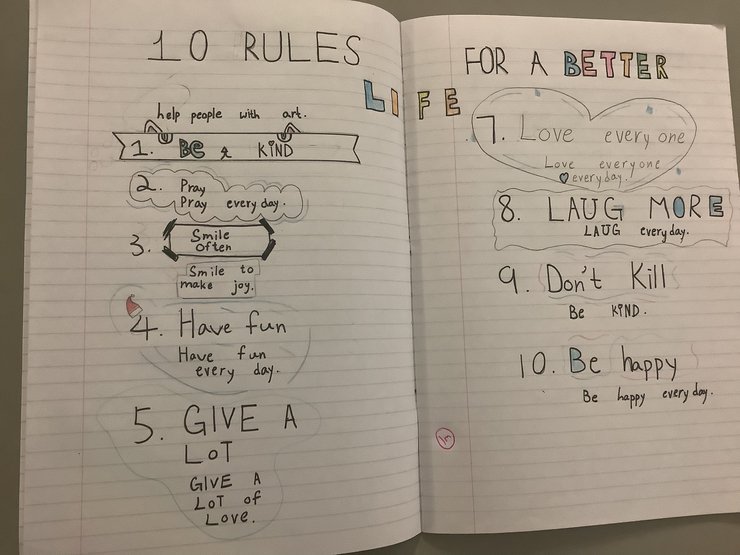 10 RULES FOR A BETTER
LIFE
help people with art.
1. BE KIND
2. Pray
Pray every day.
3. Smile
often
Smile to
make joy.
4. Have fun
Have fun
every day.
5. GIVE A
LOT
GIVE A
LOT of
Love.
7. Love every one
Love everyone
everyday.
8. LAUG MORE
LAUG every day.
9. Don't Kill
Be KIND.
10. Be happy
Be happy every day.